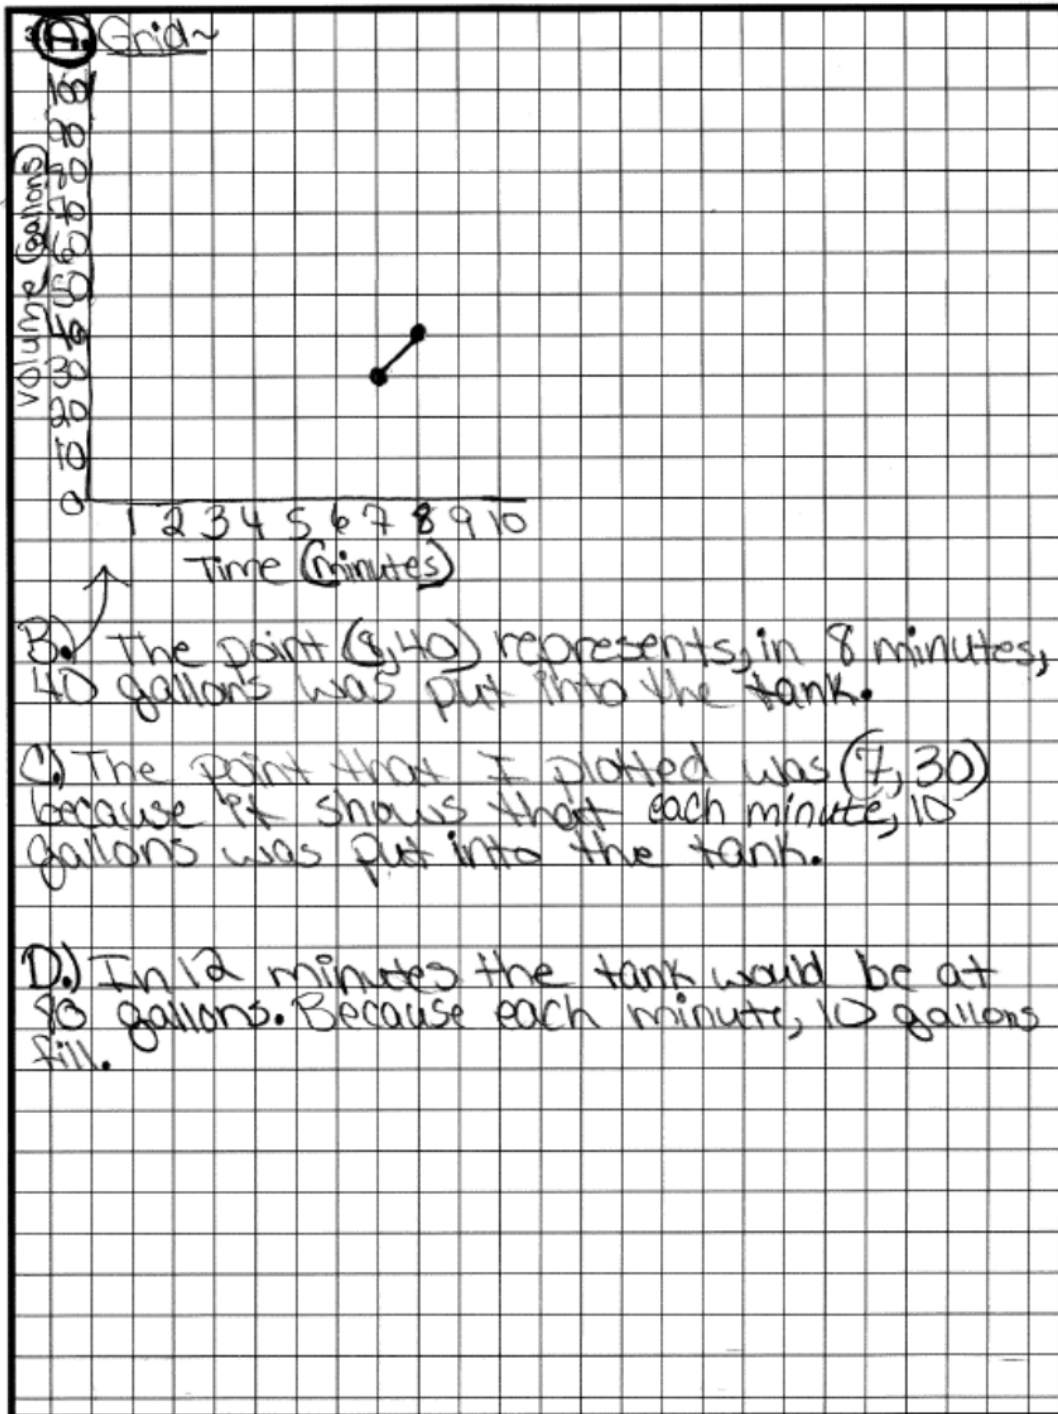 A. Grid~
100
90
80
70
60
50
40
30
20
10
0
Volume (gallons)
1 2 3 4 5 6 7 8 9 10
Time (minutes)
B.) The point (8,40) represents, in 8 minutes,
40 gallons was put into the tank.
C.) The point that I plotted was (7,30)
because it shows that each minute, 10
gallons was put into the tank.
D.) In 12 minutes the tank would be at
80 gallons. Because each minute, 10 gallons
fill.